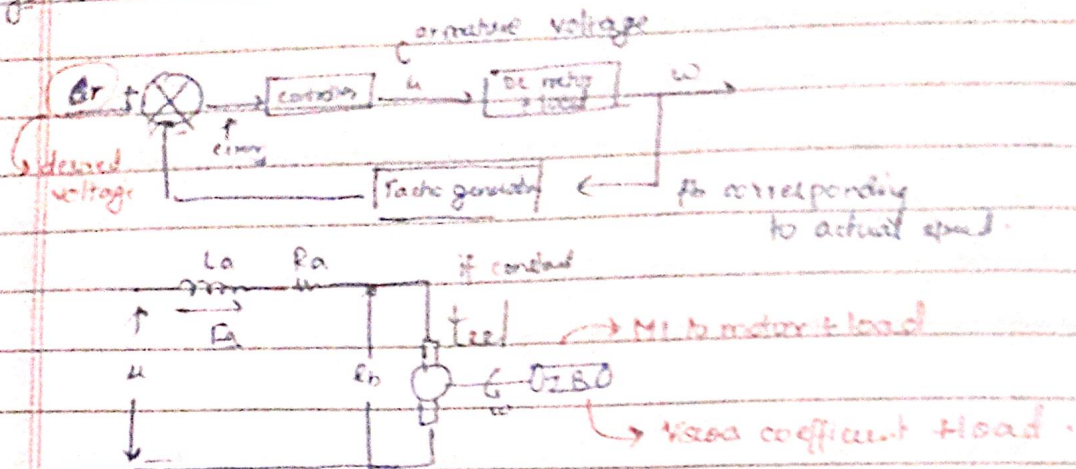 armature voltage
er + controller u DC motor + load ω
error
desired
voltage
Tacho generator
corresponding
to actual speed.
La Ra if constant
Ia
MI to motor + load
u eb
ω
coefficient + load.